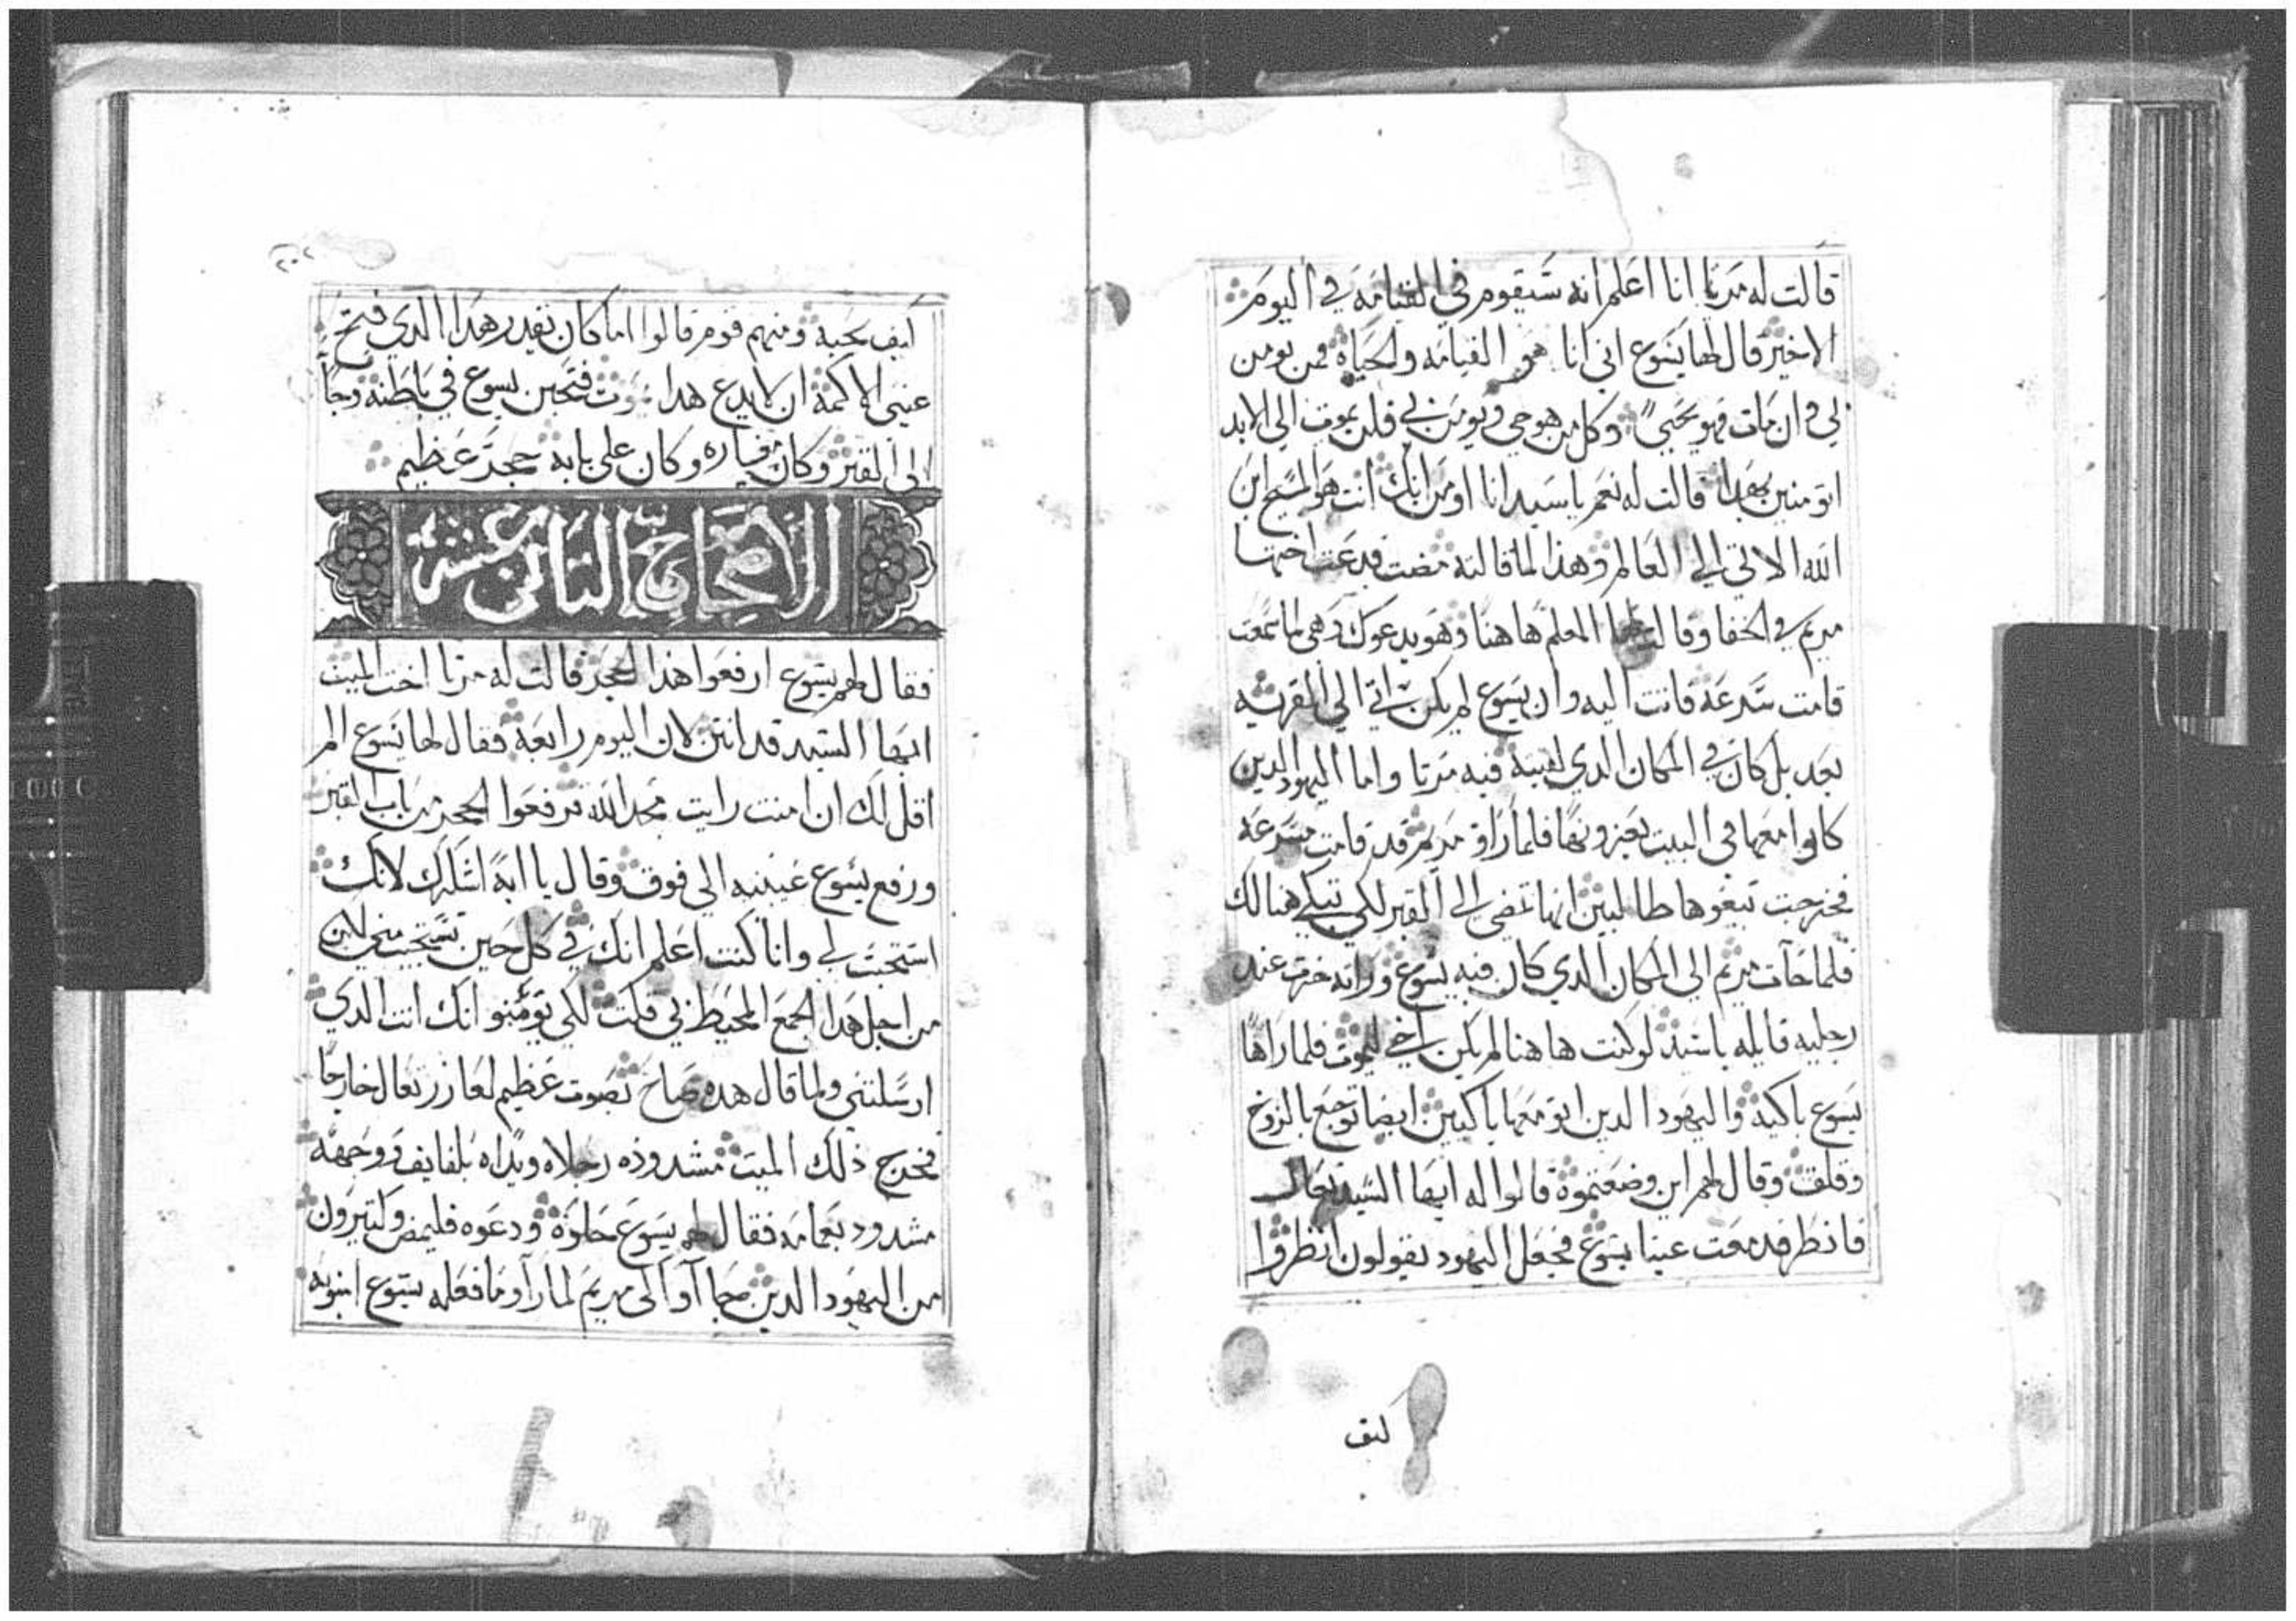 قالت له مرتا انا اعلم انه سيقوم في القيامه في اليوم
الاخير قال لها يسوع اني انا هو القيامه والحياة فمن يومن
لي وان مات فهو يحيى وكل من هو حي ويومن بي فلن يموت الي الابد
اتومنين بهدا قالت له نعم يا سيد انا اومن انك انت هو المسيح ابن
الله الاتي الي العالم وهذا لما قالته مضت فدعت اختها
مريم في الخفا وقالت لها المعلم هاهنا وهو يدعوك وهي لما سمعت
قامت سرعه فاتت اليه وان يسوع لم يكن اتي الي القريه
بعد بل كان في المكان الدي لقيته فيه مرتا واما اليهود الدين
كانوا معها في البيت يعزونها فلما راو مريم قد قامت مسرعه
فخرجت تبعوها ظانين انها تمضي الي القبر لكي تبكي هنالك
فلما جآت مريم الي المكان الدي كان فيه يسوع وراته خرت عند
رجليه قايله يا سيد لو كنت هاهنا لم يكن اخي ليموت فلما راها
يسوع باكية واليهود الدين اتو معها باكيين ايضا توجع بالروح
وقلق وقال لهم اين وضعتموة قالوا له ايها السيد تعال
فانظر فدمعت عينا يسوع فجعل اليهود يقولون انظروا
كيف
٢٠٢
كيف يحبه ومنهم قوم قالوا اما كان يقدر هدا الدي فتح
عيني الاكمه ان لا يدع هدا يموت فتحنن يسوع في باطنه وجآ
الى القبر وكان مغاره وكان علي بابه حجر عظيم
الاصحاح الثاني عشر
فقال لهم يسوع ارفعوا هذا الحجر قالت له مرتا اخت الميت
ايها السيد قد انتن لان اليوم رابعه فقال لها يسوع الم
اقل لك ان امنت رايت مجد الله فرفعوا الحجر من باب القبر
ورفع يسوع عينيه الي فوق وقال يا ابة اشكرك لانك
استجبت لي وانا كنت اعلم انك في كل حين تستجيب مني لاكن
من اجل هدا الجمع المحيط بي قلت لكي يؤمنو انك انت الدي
ارسلتني ولما قال هده صاح بصوت عظيم لعازر تعال خارجا
فخرج ذلك الميت مشدوده رجلاه ويداه بلفايف ووجهه
مشدود بعمامه فقال لهم يسوع حلوه ودعوه فليمض وكتيرون
من اليهود الدين جآآو الى مريم لما رآو ما فعله يسوع امنو به